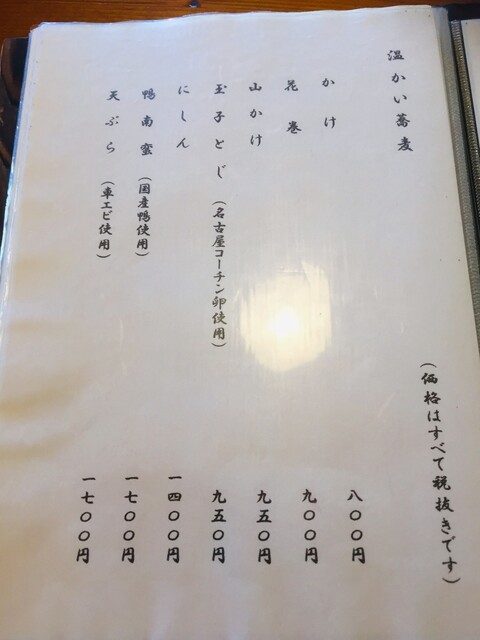 温かい蕎麦
(価格はすべて税抜きです)
かけ 八〇〇円
花巻 九〇〇円
山かけ 九五〇円
玉子とじ(名古屋コーチン卵使用) 九五〇円
にしん 一四〇〇円
鴨南蛮(国産鴨使用) 一七〇〇円
天ぷら(車エビ使用) 一七〇〇円